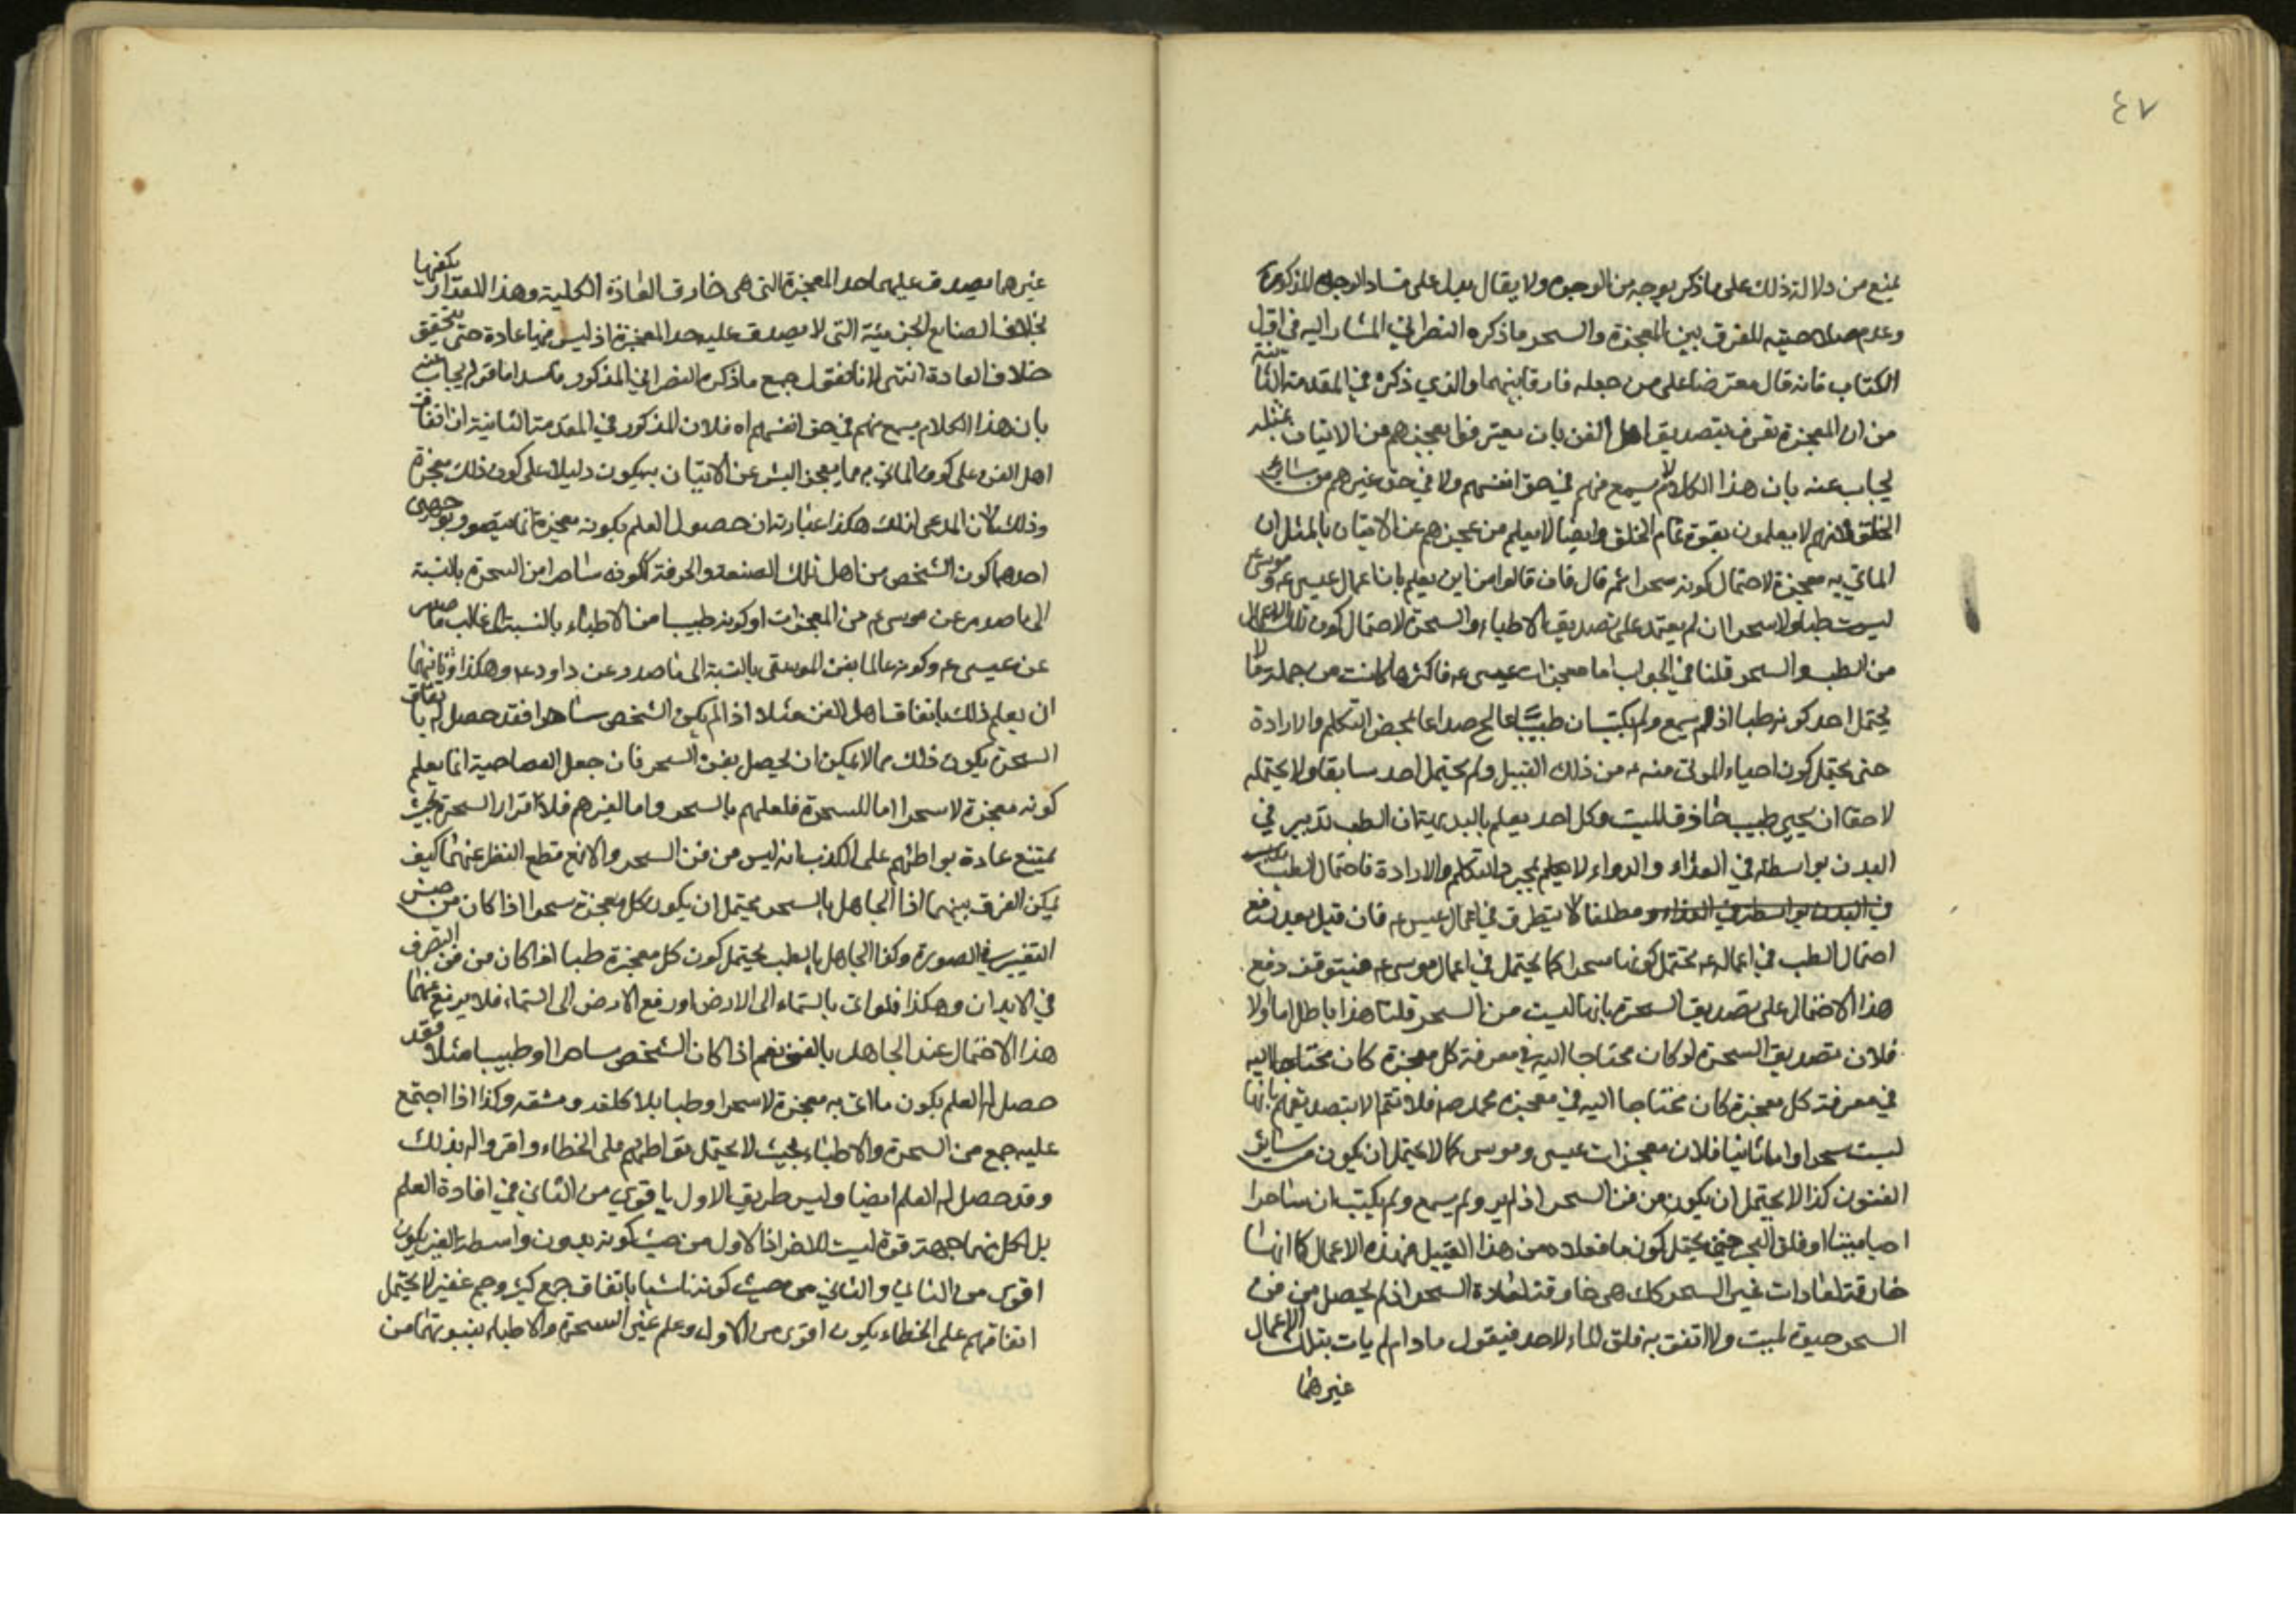 ٤٧
يمنع من دلالة ذلك على ما ذكر بوجه من الوجوه ولا يقال يدل على فساد الوجه المذكور
وعدم صلاحيته للفرق بين المعجزة والسحر ما ذكره النصراني المشار اليه في اول
الكتاب فانه قال معترضا على من جعله فارقا بينهما والذي ذكره في المقدمة الثانية
من ان المعجزة تعرف بتصديق اهل الفن بان يعترفوا بعجزهم من الاتيان بمثله
يجاب عنه بان هذا الكلام لا يسمع منهم في حق انفسهم ولا في حق غيرهم من سائر
الخلق لانهم لا يعلمون بقوة تمام الخلق وايضا لا يعلم من عجزهم عن الاتيان بالمثل ان
الماتي به معجزة لاحتمال كونه سحرا ثم قال فان قالوا من اين يعلم بان اعمال عيسى ع وموسى ع
ليست طبا ولا سحرا ان لم يعتمد على تصديق الاطباء والسحرة لاحتمال كون تلك الاعمال
من الطب والسحر قلنا في الجواب اما معجزات عيسى ع فاكثرها كانت من جملة ما لا
يحتمل احد كونه طبا اذ لم يسمع ولم يكتب ان طبيبا عالج صداعا بمحض التكلم والارادة
حتى يحتمل كون احياء الموتى منه ع من ذلك القبيل ولم يحتمل احد سابقا ولا يحتمله
لاحقا ان يحيي طبيب حاذق الميت وكل احد يعلم بالبديهة ان الطب تدبير في
البدن بواسطة في الغذاء والدواء لا بمجرد التكلم والارادة فاحتمال الطب
في البدن بواسطة في الغذاء و مطلقا لا يتطرق في اعمال عيسى ع فان قيل بعد رفع
احتمال الطب في اعماله ع يحتمل كونها سحرا كما يحتمل في اعمال موسى ع فيتوقف دفع
هذا الاحتمال على تصديق السحرة بانها ليست من السحر قلنا هذا باطل اما اولا
فلان تصديق السحرة لو كان محتاجا اليه في معرفة كل معجزة كان محتاجا اليه
في معرفة كل معجزة كان محتاجا اليه في معجزة محمد ص فلا تتم الا بتصديقهم بانها
ليست سحرا واما ثانيا فلان معجزات عيسى وموسى كما لا يحتمل ان يكون من سائر
الفنون كذا لا يحتمل ان يكون من فن السحر اذ لم ير ولم يسمع ولم يكتب ان ساحرا
احيا ميتا او فلق البحر حتى يحتمل كون ما فعلاه من هذا القبيل فهذه الاعمال كما انها
خارقة لعادات غير السحر كك هي خارقة لعادة السحر اذ لم يحصل من فن
السحر حيوة لميت ولا اتفق به فلق الماء لاحد فيقول ما دام لم يات بتلك الاعمال
غيرهما
غيرهما يصدق عليهما حد المعجزة التي هي خارق العادة الكلية وهذا المقدار يكفيها
بخلاف الصنايع الجزئية التي لا يصدق عليه حد المعجزة اذ ليس فيها عادة حتى يتحقق
خلاف العادة انتهى لانا نقول جميع ما ذكره النصراني المذكور فاسد اما قوله يجاب عنه
بان هذا الكلام يسمع منهم في حق انفسهم اه فلان المذكور في المقدمة الثانية ان اتفاق
اهل الفن على كون الماتي به مما يعجز البشر عن الاتيان به يكون دليلا على كون ذلك معجزة
وذلك لان المدعى لذلك هكذا عبارته ان حصول العلم بكونه معجزة انما يتصور بوجهين
احدهما كون الشخص من اهل تلك الصنعة والحرفة ككونه ساحرا من السحرة بالنسبة
الى ما صدر عن موسى ع من المعجزات او كونه طبيبا من الاطباء بالنسبة الى غالب ما صدر
عن عيسى ع وكونه عالما بفن الموسيقى بالنسبة الى ما صدر عن داود ع وهكذا وثانيهما
ان يعلم ذلك باتفاق اهل الفن مثلا اذا لم يكن الشخص ساحرا فقد حصل له باتفاق
السحرة بكون ذلك مما لا يمكن ان يحصل بفن السحر فان جعل العصا حية انما يعلم
كونه معجزة لا سحرا اما للسحرة فلعلمهم بالسحر واما لغيرهم فلاقرار السحرة بحيث
يمتنع عادة تواطئهم على الكذب بانه ليس من فن السحر والا فمع قطع النظر عنهما كيف
يمكن الفرق بينهما اذ الجاهل بالسحر يحتمل ان يكون كل معجزة سحرا اذا كان من جنس
التغيير في الصورة وكذا الجاهل بالطب يحتمل كون كل معجزة طبا اذا كان من فن التصرف
في الابدان وهكذا فلو اتى بالسماء الى الارض او رفع الارض الى السماء فلا يرتفع عنها
هذا الاحتمال عند الجاهل بالفن نعم اذا كان الشخص ساحرا او طبيبا مثلا فقد
حصل له العلم بكون ما اتى به معجزة لا سحرا وطبا بلا كلفة ومشقه وكذا اذا اجتمع
عليه جمع من السحرة والاطباء بحيث لا يحتمل تواطئهم على الخطاء واقروا له بذلك
وقد حصل له العلم ايضا وليس طريق الاول باقوى من الثاني في افادة العلم
بل لكل منهما جهة قوة ليست للاخر اذ الاول من حيث كونه بدون واسطة الغير يكون
اقوى من الثاني والثاني من حيث كونه ناشيا باتفاق جمع كثير وجم غفير لا يحتمل
اتفاقهم على الخطاء يكون اقوى من الاول وعلم غير السحرة والاطباء بنبوتهما من